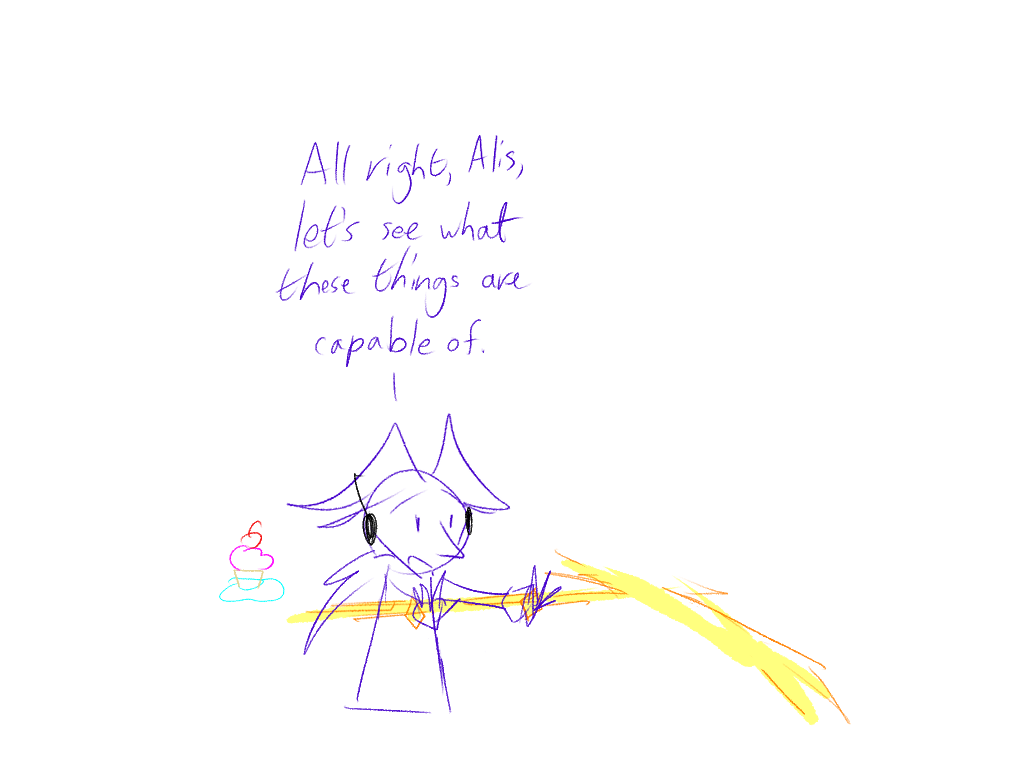 All right, Alis,
let's see what
these things are
capable of.